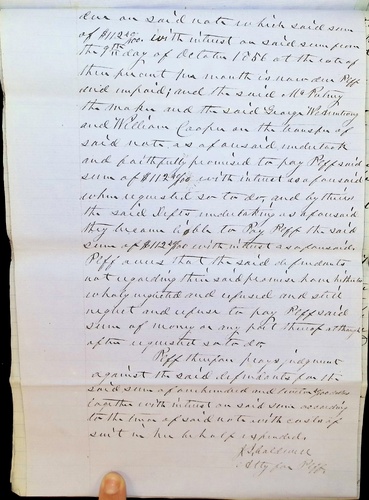 due on said note which said sum
of $112 /100 with interest on said sum from
the 9th day of October 1856 at the rate of
three percent per month is now due Plff
and unpaid; and the said
the maker and the said George W Armstrong
and William Cooper on the transfer of
said note as aforesaid undertook
and faithfully promised to pay Plff said
sum of $112 /100 with interest as aforesaid
when requested so to do, and by the
the said defts undertaking as aforesaid
they became liable to Pay Plff the said
sum of $112 /100 with interest as aforesaid.
Plff avers that the said defendants
not regarding their said promise have hitherto
wholy neglected and refused and still
neglect and refuse to pay Plff said
sum of money or any part thereof although
often requested so to do
Plff therefore prays judgment
against the said defendants for the
said sum of one hundred and twelve /100 dollars
together with interest on said sum according
to the tenor of said note with costs of
suit in her behalf expended.
Atty for Plff